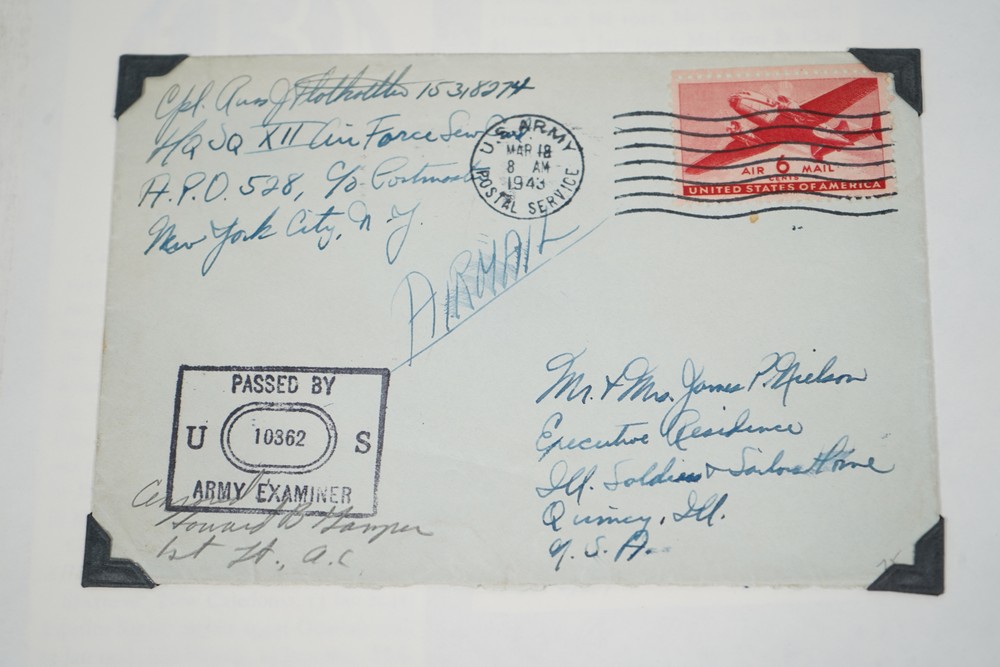 Cpl. J 15318274
HQ SQ XII Air Force Serv.
A.P.O. 528, c/o Postmaster
New York City, N.Y.
U.S. ARMY
MAR 18
8 AM
1943
POSTAL SERVICE
AIR 6 MAIL
CENTS
UNITED STATES OF AMERICA
AIRMAIL
PASSED BY
U 10362 S
ARMY EXAMINER
Howard B
1st Lt., A.C.
Mr. & Mrs. James P. Nielson
Executive Residence
Ill. Soldiers & Sailors Home
Quincy, Ill.
U.S.A.